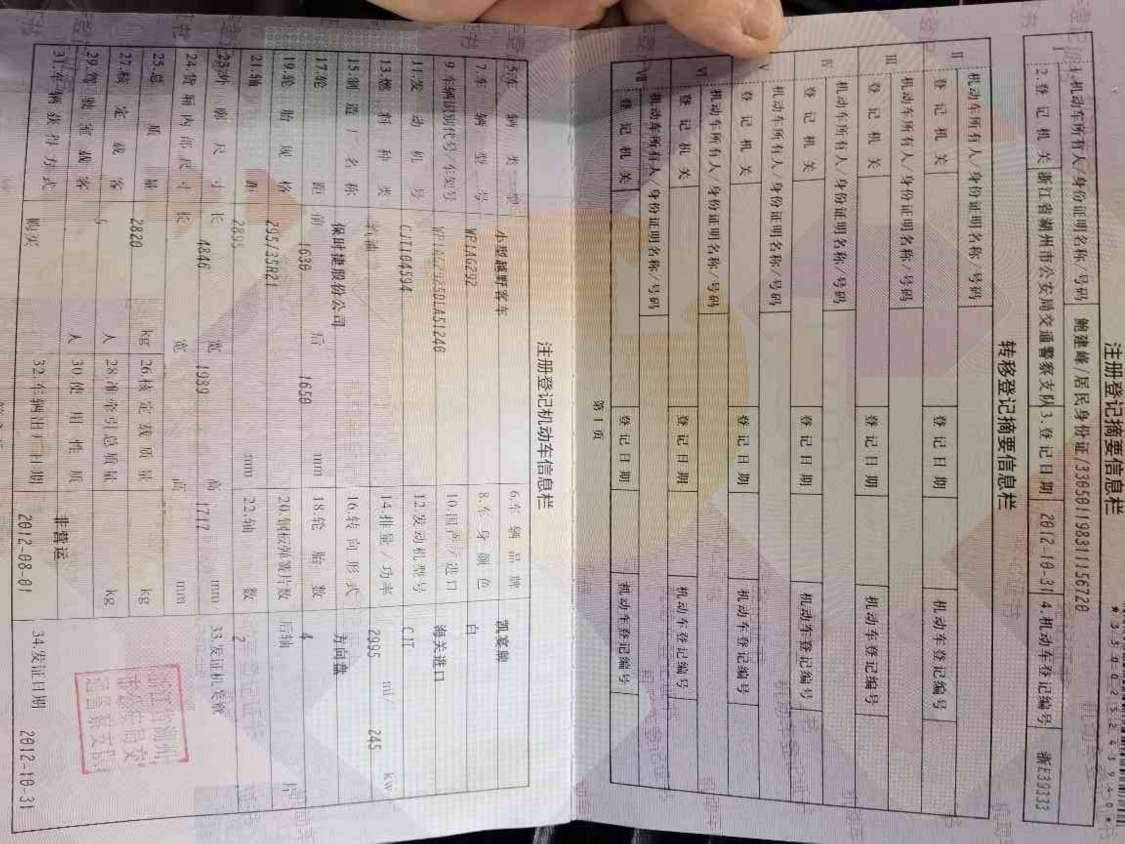 注册登记摘要信息栏
1.机动车所有人/身份证明名称/号码 鲍建峰/居民身份证/330501198311156720
2.登记机关 浙江省湖州市公安局交通警察支队 3.登记日期 2012-10-31 4.机动车登记编号 浙E39333
转移登记摘要信息栏
机动车所有人/身份证明名称/号码
II 登记机关 登记日期 机动车登记编号
机动车所有人/身份证明名称/号码
III 登记机关 登记日期 机动车登记编号
机动车所有人/身份证明名称/号码
IV 登记机关 登记日期 机动车登记编号
机动车所有人/身份证明名称/号码
V 登记机关 登记日期 机动车登记编号
机动车所有人/身份证明名称/号码
VI 登记机关 登记日期 机动车登记编号
机动车所有人/身份证明名称/号码
VII 登记机关 登记日期 机动车登记编号
第1页
注册登记机动车信息栏
5.车辆类型 小型越野客车 6.车辆品牌 凯宴牌
7.车辆型号 WP1AG292 8.车身颜色 白
9.车辆识别代号/车架号 10.国产/进口 海关进口
11.发动机号 CJT104594 12.发动机型号 CJT
13.燃料种类 汽油 14.排量/功率 2995 ml/ 245 kw
15.制造厂名称 保时捷股份公司 16.转向形式 方向盘
17.轮距 前 1630 后 1650 mm 18.轮胎数 4
19.轮胎规格 295/35R21 20.钢板弹簧片数 后轴 片
21.轴距 2895 mm 22.轴数 2
23.外廓尺寸 长 4846 宽 1939 高 1717 mm
24.货厢内部尺寸 长 宽 高 mm
25.总质量 2820 kg 26.核定载质量 kg
27.核定载客 5 人 28.准牵引总质量 kg
29.驾驶室载客 人 30.使用性质 非营运
31.车辆获得方式 购买 32.车辆出厂日期 2012-08-01
33.发证机关章
34.发证日期 2012-10-31